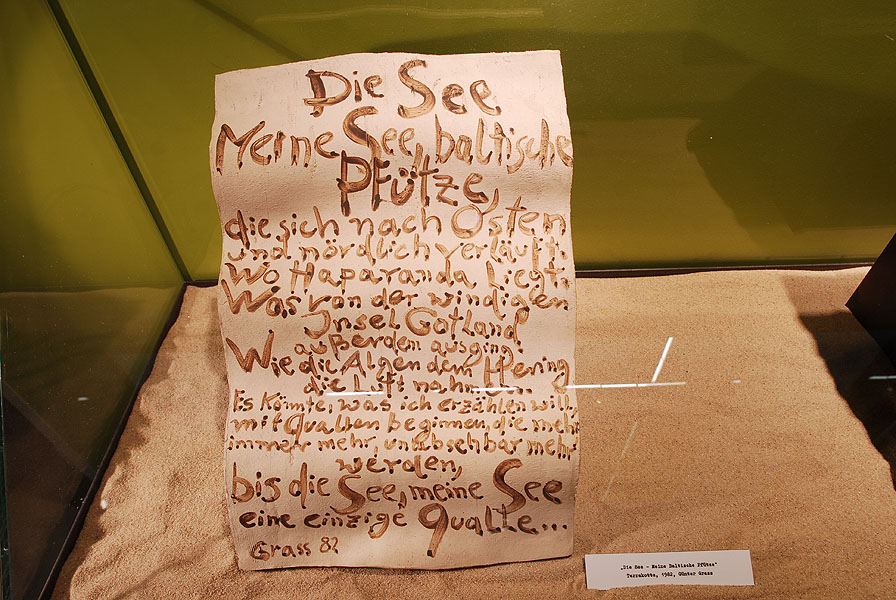 Die See
Meine See, baltische
Pfütze,
die sich nach Osten
und nördlich verläuft.
Wo Haparanda liegt.
Was von der windigen
Insel Gotland
außerdem ausging.
Wie die Algen dem Hering
die Luft nahmen.
Es könnte, was ich erzählen will,
mit Quallen beginnen, die mehr
immer mehr, unabsehbar mehr
werden,
bis die See, meine See
eine einzige Qualle...
Grass 82
„Die See - Meine Baltische Pfütze"
Terrakotta, 1982, Günter Grass